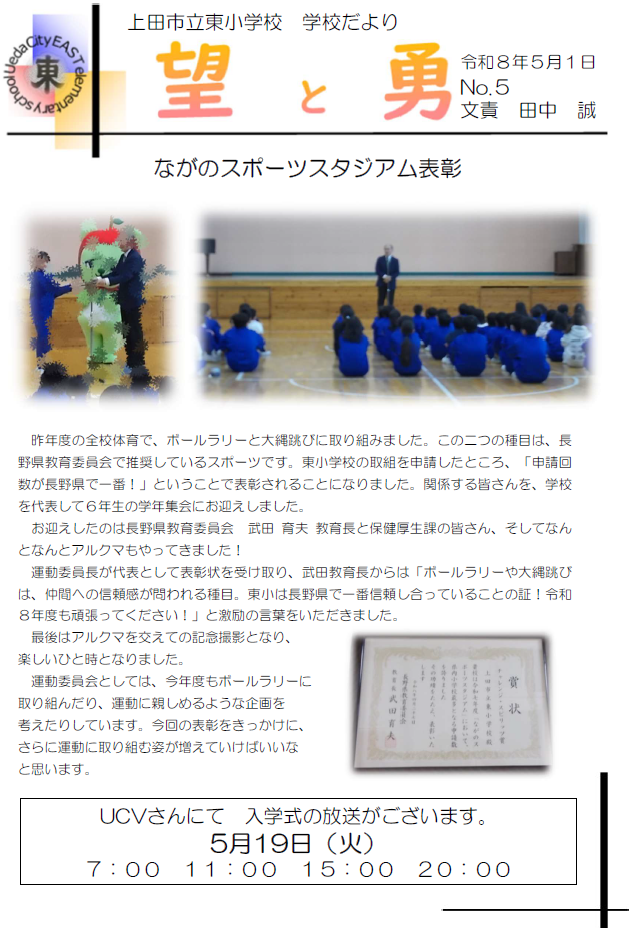 上田市立東小学校　学校だより
Ueda City EAST elementary school
東
望と勇
令和８年５月１日
No.５
文責　田中　誠
ながのスポーツスタジアム表彰
昨年度の全校体育で、ボールラリーと大縄跳びに取り組みました。この二つの種目は、長
野県教育委員会で推奨しているスポーツです。東小学校の取組を申請したところ、「申請回
数が長野県で一番！」ということで表彰されることになりました。関係する皆さんを、学校
を代表して６年生の学年集会にお迎えしました。
お迎えしたのは長野県教育委員会　武田 育夫 教育長と保健厚生課の皆さん、そしてなん
となんとアルクマもやってきました！
運動委員長が代表として表彰状を受け取り、武田教育長からは「ボールラリーや大縄跳び
は、仲間への信頼感が問われる種目。東小は長野県で一番信頼し合っていることの証！令和
８年度も頑張ってください！」と激励の言葉をいただきました。
最後はアルクマを交えての記念撮影となり、
楽しいひと時となりました。
運動委員会としては、今年度もボールラリーに
取り組んだり、運動に親しめるような企画を
考えたりしています。今回の表彰をきっかけに、
さらに運動に取り組む姿が増えていけばいいな
と思います。
賞状
上田市立東小学校殿
長野県教育委員会
教育長 武田育夫
UCVさんにて　入学式の放送がございます。
５月１９日（火）
７：００　１１：００　１５：００　２０：００